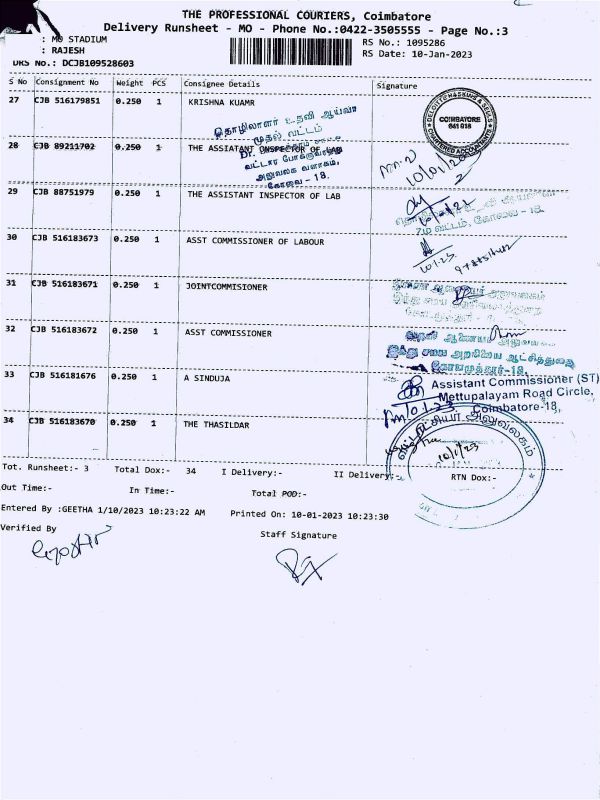 THE PROFESSIONAL COURIERS, Coimbatore
Delivery Runsheet - MO - Phone No.:0422-3505555 - Page No.:3
: MO STADIUM
RS No.: 1095286
: RAJESH
RS Date: 10-Jan-2023
DRS No.: DCJB109528603
S No Consignment No Weight PCS Consignee Details Signature
27 CJB 516179851 0.250 1 KRISHNA KUAMR
DELOITTE HASKINS & SELLS
COIMBATORE
641 018
CHARTERED ACCOUNTANTS
தொழிலாளர் உதவி ஆய்வர்
முதல் வட்டம்
28 CJB 89211702 0.250 1 THE ASSIATANT INSPECTOR OF LAB
வட்டார போக்குவரத்து
அலுவலக வளாகம்,
கோவை - 18.
10/01/2
29 CJB 88751979 0.250 1 THE ASSISTANT INSPECTOR OF LAB
7ம் வட்டம், கோவை - 18.
30 CJB 516183673 0.250 1 ASST COMMISSIONER OF LABOUR
10/1/23
31 CJB 516183671 0.250 1 JOINTCOMMISIONER
32 CJB 516183672 0.250 1 ASST COMMISSIONER
உதவி ஆணையர் அலுவலகம்
இந்து சமய அறநிலைய ஆட்சித்துறை
கோயமுத்தூர்-18.
33 CJB 516181676 0.250 1 A SINDUJA
Assistant Commissioner (ST)
Mettupalayam Road Circle,
Coimbatore-18,
34 CJB 516183670 0.250 1 THE THASILDAR
10/1/23
Tot. Runsheet:- 3 Total Dox:- 34 I Delivery:- II Delivery:- RTN Dox:-
Out Time:- In Time:- Total POD:-
Entered By :GEETHA 1/10/2023 10:23:22 AM Printed On: 10-01-2023 10:23:30
Verified By Staff Signature